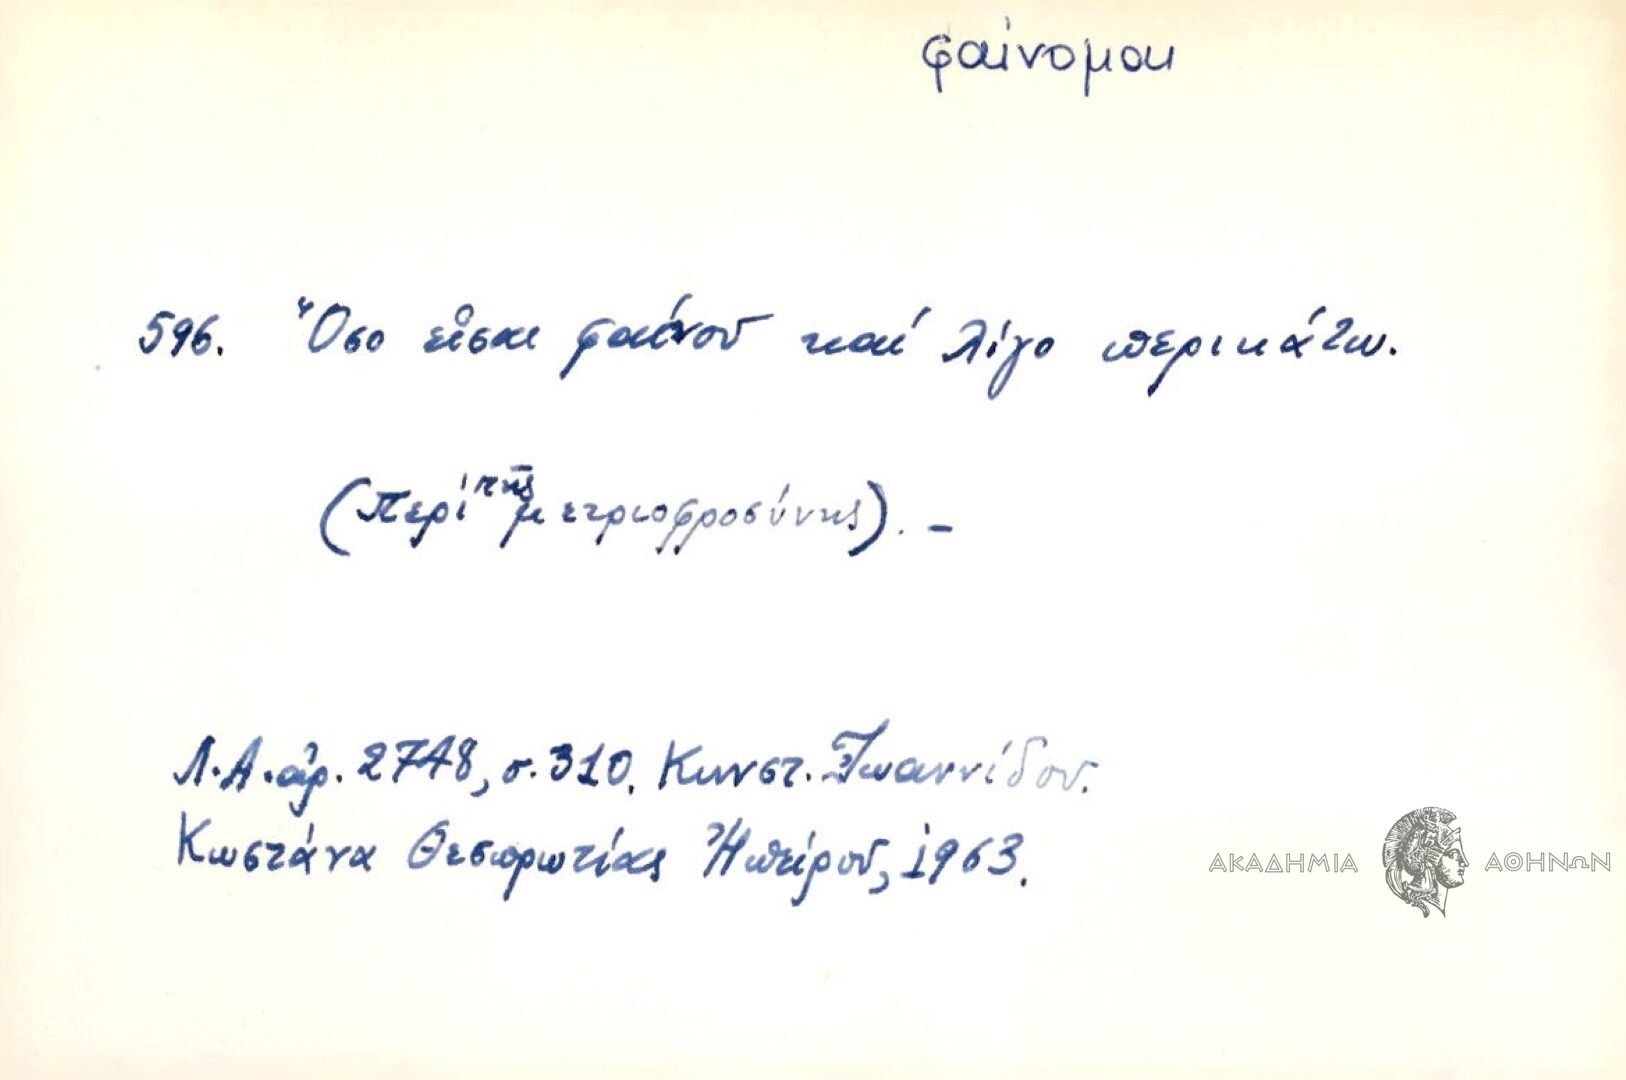 φαίνομαι
596. Ὅσο εἶσαι φαίνου καί λίγο περικάτω.
(Περί τῆς μετριοφροσύνης). -
Λ.Α. ἀρ. 2748, σ. 310. Κωνστ. Ἰωαννίδου.
Κωστάνα Θεσπρωτίας Ἠπείρου, 1963.
ΑΚΑΔΗΜΙΑ ΑΘΗΝΩΝ